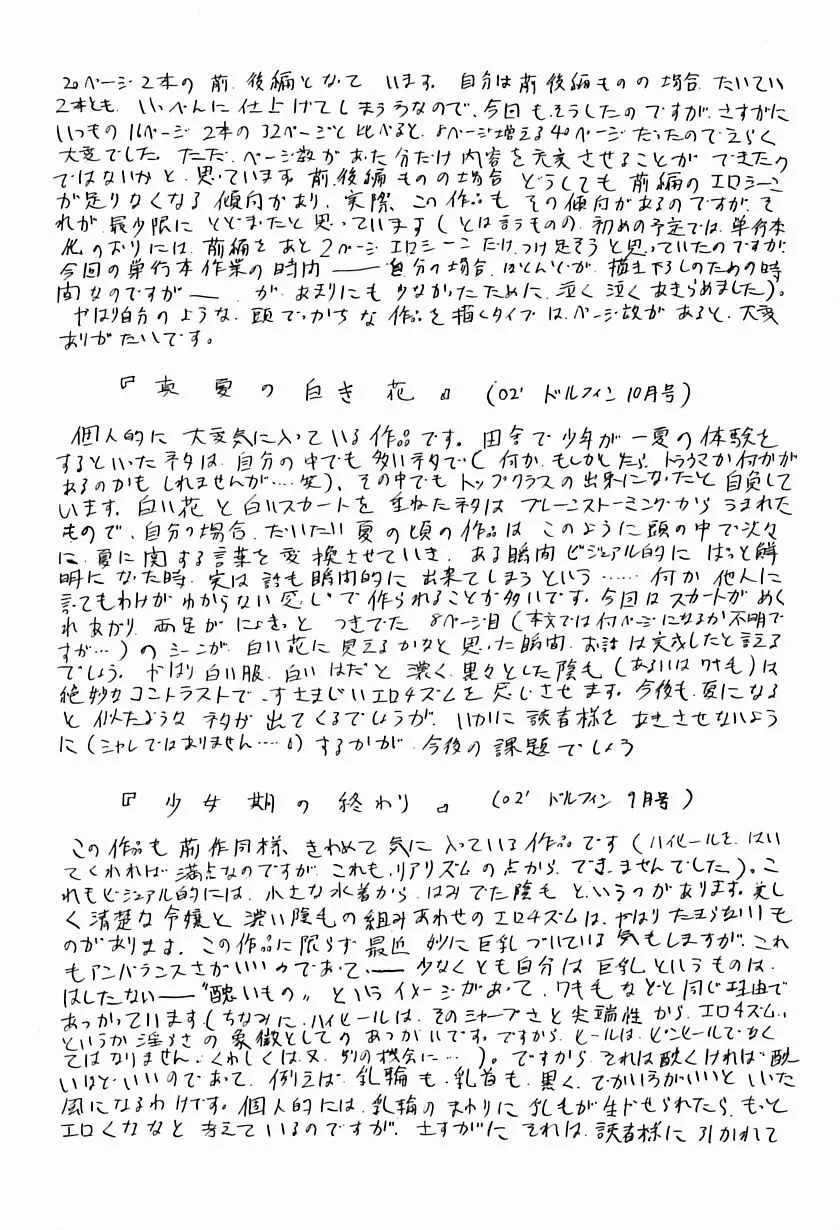 20ページ2本の前、後編となって います。自分は前後編ものの場合、たいてい
2本とも、いっぺんに仕上げてしまううなので、今回も、そうしたのですが、さすがに
いつもの16ページ2本の32ページと比べると、8ページ増える40ページだったのでえらく
大変でした。ただ、ページ数があった分だけ内容を充実させることが できたの
ではないかと、思っています。前、後編ものの場合 どうしても 前編のエロシーン
が足りなくなる傾向があり、実際、この作品も その傾向があるのですが、そ
れが、最少限に とどまったと思っています（とは言うものの、初めの予定では、単行本
化のおりには、前編を あと2ページ エロシーンだけ、つけ足そうと思っていたのですが、
今回の単行本作業の時間――自分の場合、ほとんどが、描き下ろしのための時
間なのですが―― が、あまりにも 少なかったために、泣く泣く あきらめました）。
やはり自分のような、頭でっかちな作品を描くタイプは、ページ数があると、大変
ありがたいです。
『真夏の白き花』（02' ドルフィン10月号）
個人的に 大変気に入っている作品です。田舎で少年が一夏の体験を
するといったネタは、自分の中でも多いネタで（何か、もしかしたら、トラウマか何かが
あるのかも しれませんが……笑）、その中でも トップクラスの出来になったと自負して
います。白い花と白いスカートを 重ねたネタは ブレーンストーミングから うまれた
もので、自分の場合、だいたい夏の頃の作品は このように頭の中で次々
に、夏に関する言葉を変換させていき、ある瞬間ビジュアル的に はっと鮮
明になった時、実は話も瞬間的に 出来てしまうという…… 何か他人に
言ってもわけがわからない感じで作られることが多いです。今回はスカートがめく
れあがり、両足がにょきっと つきでた 8ページ目（本文では何ページになるか不明で
すが…）のシーンが、白い花に見えるかなと思った瞬間、お話は完成したと言える
でしょう。やはり白い服、白いはだと 濃く、黒々とした陰毛（あるいはワキ毛）は
絶妙なコントラストで、すさまじいエロチズムを感じさせます。今後も、夏になる
と似たようなネタが出てくるでしょうが、いかに読者様をあきさせないよう
に（シャレではありません……）するかが、今後の課題でしょう
『少女期の終わり』（02' ドルフィン9月号）
この作品も前作同様、きわめて気に入っている作品です（ハイヒールを、はい
てくれれば満点なのですが、これも、リアリズムの点から、できませんでした）。こ
れもビジュアル的には、小さな水着から、はみでた陰毛 というのがあります。美し
く清楚な令嬢と 濃い陰毛の組みあわせのエロチズムは、やはりたまらないもも
のがあります。この作品に限らず最近 妙に巨乳づいている気もしますが、これ
もアンバランスさがいいのであって、――少なくとも自分は 巨乳というものは、
はしたない――“醜いもの”というイメージがあって、ワキ毛などと同じ理由で
あつかっています（ちなみに、ハイヒールは、そのシャープさと尖端性から、エロチズム、
というか淫らさの象徴としての あつかいです。ですから、ヒールは、ピンヒールでなく
てはなりません、くわしくは、又、別の機会に…）。ですから、それは醜くければ醜
いほどいいのであって、例えば、乳輪も、乳首も、黒く、でかいうがいいと いった
風になるわけです。個人的には、乳輪のまわりに乳毛が生やせられたら、もっと
エロくなると 考えているのですが、さすがに それは、読者様に 引かれて